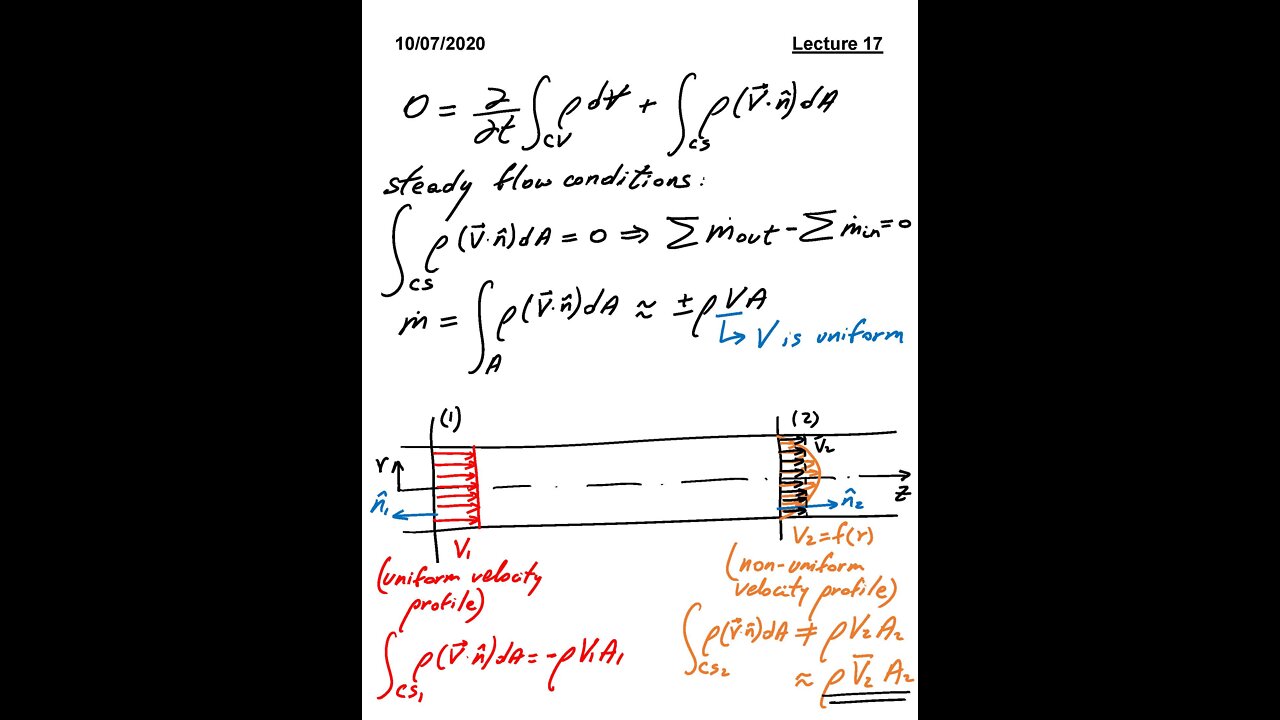 10/07/2020 Lecture 17
0 = ∂/∂t ∫_CV ρ dV̶ + ∫_CS ρ(V⃗·n̂)dA
steady flow conditions:
∫_CS ρ(V⃗·n̂)dA = 0 ⇒ Σṁout - Σṁin = 0
ṁ = ∫_A ρ(V⃗·n̂)dA ≈ ± ρVA
↳ V is uniform
(1) (2)
V̅₂
r
z
n̂₁ n̂₂
V₁ V₂ = f(r)
(uniform velocity
profile)
(non-uniform
velocity profile)
∫_CS₁ ρ(V⃗·n̂)dA = -ρV₁A₁
∫_CS₂ ρ(V⃗·n̂)dA ≠ ρV₂A₂
≈ ρV̅₂A₂